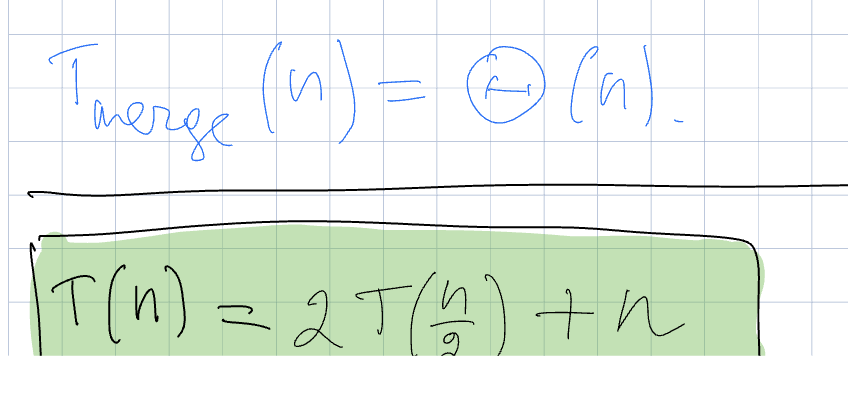 T_merge (n) = Θ (n).
T(n) = 2 T(n/2) + n